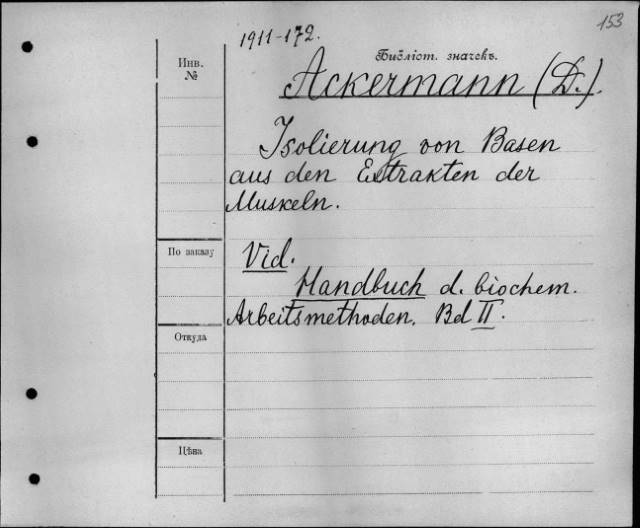 153
1911-172.
Инв.
№
Библіот. значекъ.
Ackermann (D.).
Isolierung von Basen
aus den Extrakten der
Muskeln.
По заказу
Vid.
Handbuch d. biochem.
Arbeitsmethoden. Bd II.
Откуда
Цѣна